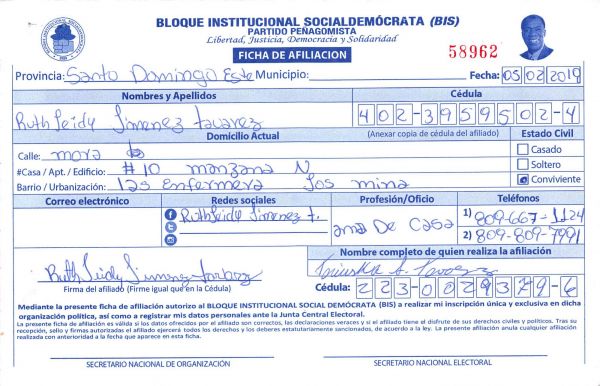 BLOQUE INSTITUCIONAL SOCIALDEMÓCRATA (BIS)
PARTIDO PEÑAGOMISTA
Libertad, Justicia, Democracia y Solidaridad
FICHA DE AFILIACION
58962
Provincia: Santo Domingo Este Municipio: Fecha: 05/02/2019
Nombres y Apellidos
Cédula
Ruth leidy Jimenez tavarez
402-3959502-4
Domicilio Actual
(Anexar copia de cédula del afiliado)
Estado Civil
Calle: mora
Casado
#Casa / Apt. / Edificio: #10 manzana N
Soltero
Barrio / Urbanización: las Enfermera los mina
Conviviente
Correo electrónico
Redes sociales
Profesión/Oficio
Teléfonos
Ruthleidy Jimenez t.
ama De Casa
1) 809-667-1124
2) 809-809-7991
Nombre completo de quien realiza la afiliación
Ruth leidy Jimenez
Firma del afiliado (Firme igual que en la Cédula)
Cédula: 223-0029379-6
Mediante la presente ficha de afiliación autorizo al BLOQUE INSTITUCIONAL SOCIAL DEMÓCRATA (BIS) a realizar mi inscripción única y exclusiva en dicha
organización política, así como a registrar mis datos personales ante la Junta Central Electoral.
La presente ficha de afiliación es válida si los datos ofrecidos por el afiliado son correctos, las declaraciones veraces y si el afiliado tiene el disfrute de sus derechos civiles y políticos. Tras su
recepción, sello y firmas autorizadas el afiliado ejercerá todos los derechos y los deberes estatutariamente sancionados, de acuerdo a la ley. La presente afiliación anula cualquier afiliación
realizada con anterioridad a la fecha que aparece en esta ficha.
SECRETARIO NACIONAL DE ORGANIZACIÓN
SECRETARIO NACIONAL ELECTORAL